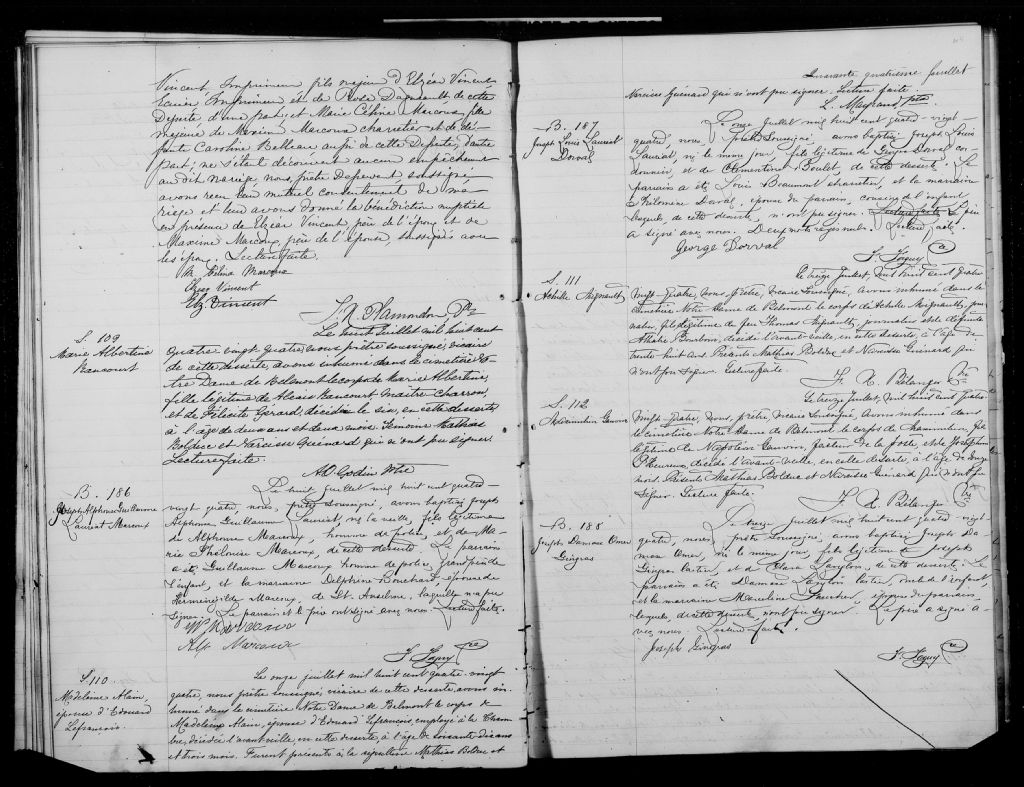 Vincent Imprimeur fils majeur d'Elzéar Vincent
Imprimeur et de Rose Dagneault de cette
Desserte d'une part; et Marie Céline Marcoux fille
majeure de Maxime Marcoux charretier et de dé-
funte Caroline Belleau aussi de cette Desserte, d'autre
part; ne s'étant découvert aucun empêchement
au dit mariage, nous, prêtre soussigné
avons reçu leur mutuel consentement de ma-
riage et leur avons donné la bénédiction nuptiale
en presence de Elzéar Vincent, père de l'époux et de
Maxime Marcoux père de l'épouse, soussignés avec
les époux. Lecture faite.
M. Marcoux
Elzear Vincent
Elz. Vincent
Plamondon Ptre
S. 109
Marie Albertine
Rancourt
Le huit Juillet mil huit cent
quatre vingt quatre, nous prêtre soussigné, vicaire
de cette desserte, avons inhumé dans le cimetière No-
tre Dame de Belmont le corps de Marie Albertine,
fille légitime de Alexis Rancourt Maître Charron,
et de Félicité Gérard, décédée le six, en cette desserte,
à l'âge de deux ans et deux mois. Témoins Mathias
Bolduc et Narcisse Guénard qui n'ont pu signer.
Lecture faite.
Ad Godin Vic
B. 186
Joseph Alphonse Guillaume
Lauréat Marcoux
Le huit juillet mil huit cent quatre-
vingt quatre, nous, prêtre soussigné, avons baptisé Joseph
Alphonse Guillaume Lauréat, né la veille, fils légitime
de Alphonse Marcoux, homme de police, et de Ma-
rie Philouise Marcoux, de cette desserte. Le parrain
a été Guillaume Marcoux homme de police, grand père de
l'enfant, et la marraine Delphine Bouchard, épouse de
Herménégilde Marcoux, de St. Anselme, laquelle n'a pu
signer. Le parrain et le père ont signé avec nous. Lecture faite.
Marcoux
Alp Marcoux
F. Faguy Ptre
S. 110
Madeleine Alain,
épouse d'Edouard
Lefrancois.
Le onze juillet mil huit cent quatre-vingt
quatre, nous prêtre soussigné, vicaire de cette desserte, avons in-
humé dans le cimetière Notre Dame de Belmont le corps de
Madeleine Alain, épouse d'Edouard Lefrancois, employé à la Cham-
bre, décédée l'avant veille, en cette desserte, à l'âge de soixante dix ans
et trois mois. Furent présents à la sépulture Mathias Bolduc et
Quarante quatrieme feuillet
Narcisse Guénard qui n'ont pu signer. Lecture faite.
L. Ptre
B. 187
Joseph Louis Lauréat
Dorval
Le onze Juillet mil huit cent quatre vingt-
quatre, nous, prêtre soussigné, avons baptisé Joseph Louis
Lauréat, né le même jour, fils légitime de George Dorval cor-
donnier, et de Clementine Boulet, de cette desserte. Le
parrain a été Louis Beaumont charretier, et la marraine
Philomène Dorval, épouse du parrain, cousins de l'enfant
lesquels de cette desserte, n'ont pu signer. Lecture faite. Le père
a signé avec nous. Deux mots rayés nuls. Lecture faite.
George Dorval
F. Faguy Ptre
S. 111
Achille Mignault
Le treize Juillet, mil huit cent quatre
vingt-quatre, nous, prêtre, vicaire soussigné, avons inhumé dans le
cimetière Notre Dame de Belmont le corps de Achille Mignault, jour-
nalier, fils légitime de feu Thomas Mignault, journalier et de défunte
Bourbeau, décédé l'avant-veille, en cette desserte, à l'âge de
trente huit ans. Présents Mathias Bolduc et Narcisse Guénard qui
n'ont pu signer. Lecture faite.
F. X. Bélanger Ptre
S. 112
Maximilien Gauvin
Le treize Juillet, mil huit cent quatre
vingt-quatre, nous, prêtre, vicaire soussigné, avons inhumé dans
le cimetière Notre Dame de Belmont le corps de Maximilien, fils
légitime de Napoléon Gauvin, facteur de la poste, et de Joséphine
L'Heureux, décédé l'avant-veille, en cette desserte, à l'âge de
mois. Présents Mathias Bolduc et Narcisse Guénard qui n'ont pu
signer. Lecture faite.
F. X. Bélanger Ptre
B. 188
Joseph Damase Omer
Gingras
Le treize Juillet mil huit cent quatre vingt-
quatre, nous, prêtre soussigné, avons baptisé Joseph Da-
mase Omer, né le même jour, fils légitime de Joseph
Gingras, et de Clara Langlois, de cette desserte. Le
parrain a été Damase Langlois, oncle de l'enfant,
et la marraine Marceline épouse du parrain,
lesquels, de cette desserte, n'ont pu signer. Le père a signé a-
vec nous. Lecture faite.
Joseph Gingras
F. Faguy Ptre